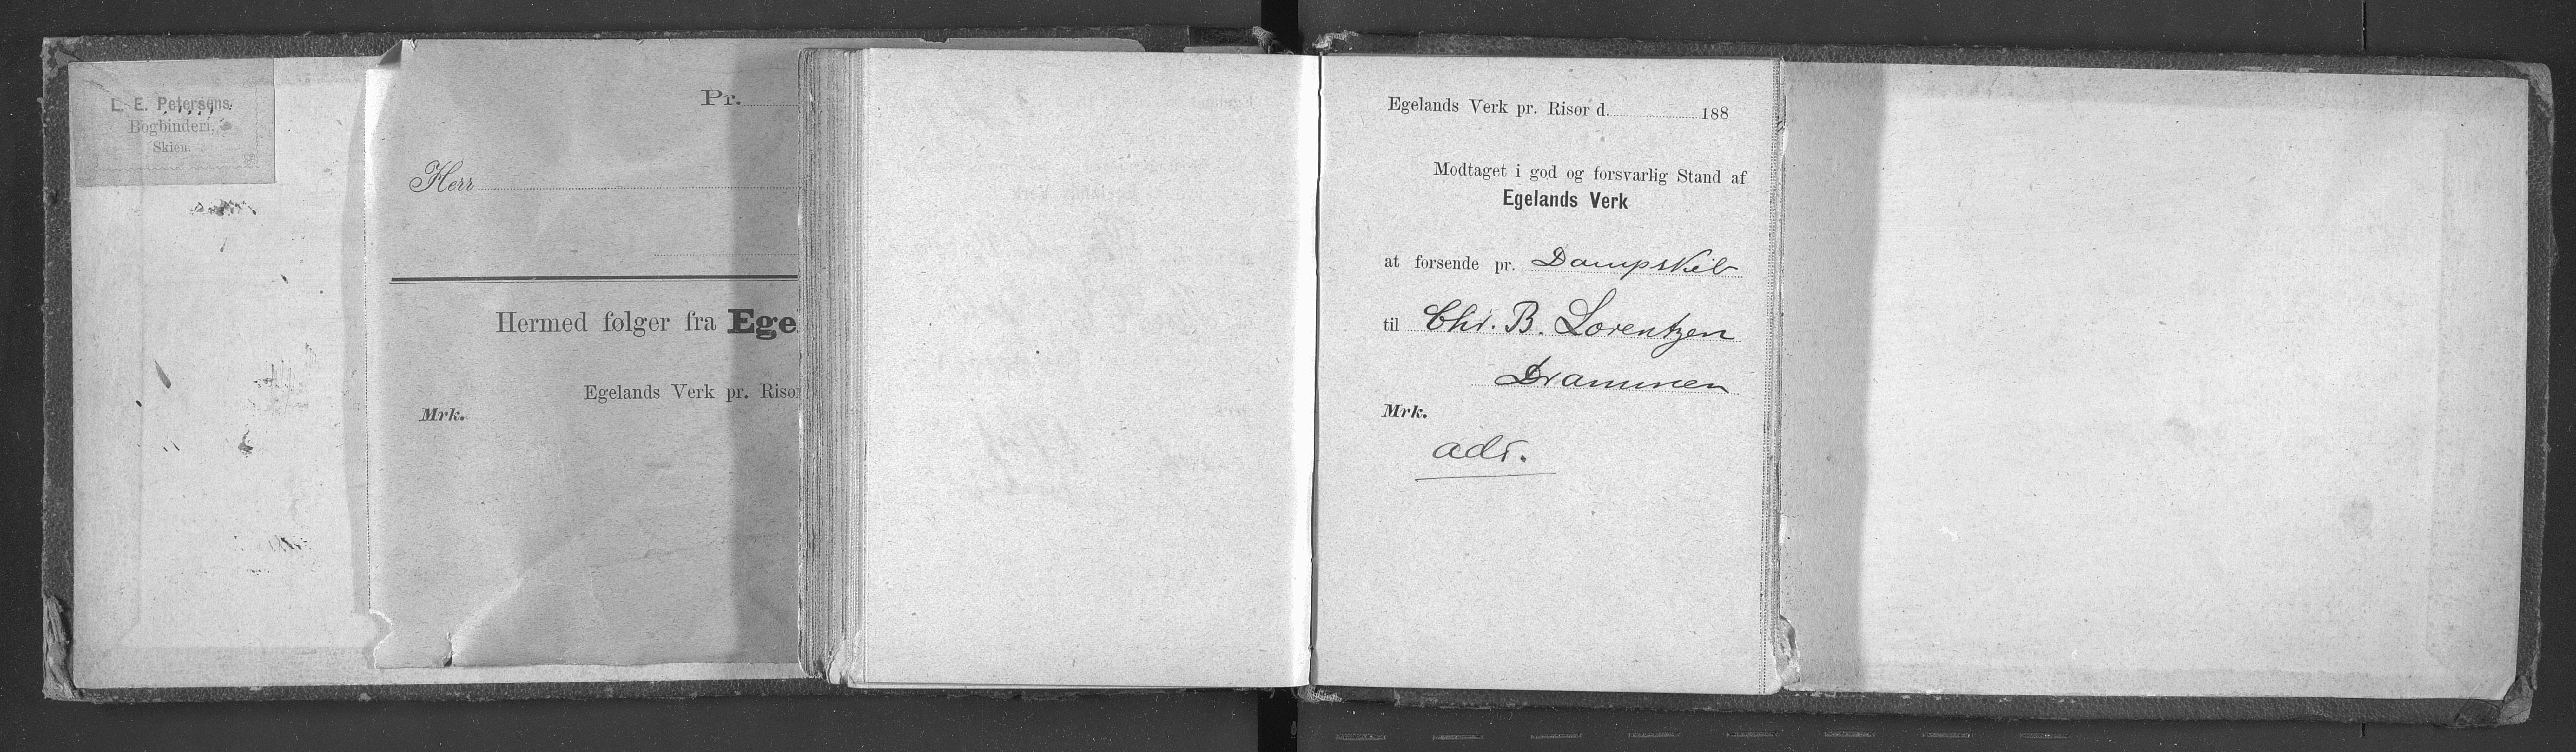 L. E. Petersens
Bogbinderi,
Skien.
Pr.
Herr
Hermed følger fra Ege
Egelands Verk pr. Risør
Mrk.
Egelands Verk pr. Risør d. 188
Modtaget i god og forsvarlig Stand af
Egelands Verk
at forsende pr. Dampskib
til Chr. B. Lorentzen
Drammen
Mrk.
adr.